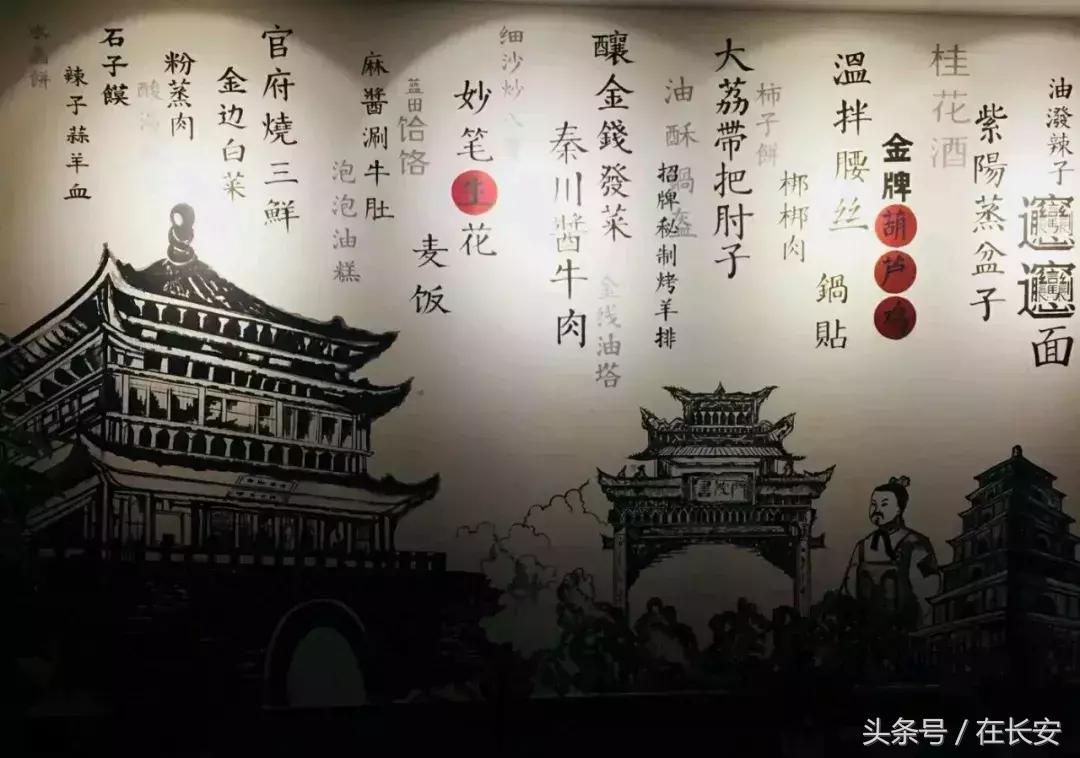 油潑辣子𰻞𰻞面
紫陽蒸盆子
桂花酒
金牌葫芦鸡
溫拌腰丝
鍋貼
梆梆肉
柿子餅
大荔帶把肘子
油酥鍋盔
招牌秘制烤羊排
釀金錢發菜
金线油塔
秦川醬牛肉
细沙炒八
妙笔生花
麦饭
蓝田饸饹
麻醬涮牛肚
泡泡油糕
官府燒三鮮
金边白菜
粉蒸肉
酸
石子饃
辣子蒜羊血
水晶餅
头条号 / 在长安